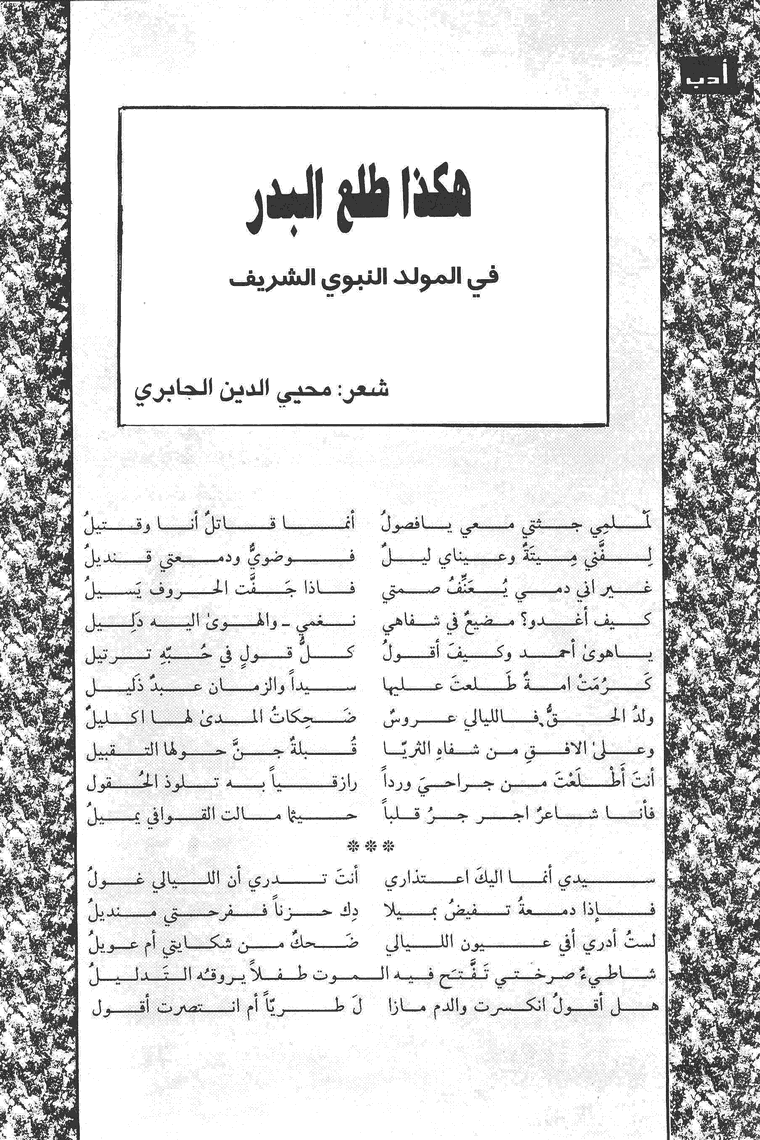 أدب
هكذا طلع البدر
في المولد النبوي الشريف
شعر: محيي الدين الجابري
لَمْلمِي جثتي معي يافصولُ أنما قاتلٌ أنا وقتيلُ
لِفَّني مِيتَةٌ وعيناي ليلٌ فوضويٌّ ودمعتي قنديلُ
غير اني دمي يُعَنِّفُ صمتي فاذا جَفَّت الحروف يَسيلُ
كيف أغدو؟ مضيعٌ في شفاهي نغمي ـ والهوىٰ اليه دَلِيل
ياهوىٰ أحمد وكيفَ أقولُ كلُّ قولٍ في حُبّهِ ترتيل
كَرُمَتْ امةٌ طَلعتَ عليها سيداً والزمان عبدٌ ذَليل
ولدُ الحقُّ فالليالي عروسٌ ضَحِكاتُ المدىٰ لها اكليلٌ
وعلىٰ الافقِ من شفاهِ الثريّا قُبلةٌ جنَّ حولها التقبيل
أنتَ أَطْلَعْتَ من جراحيَ ورداً رازقياً به تلوذ الحُقول
فأنا شاعرٌ اجر جرُ قلباً حيثما مالت القوافي يميلُ
***
سيدي أنما اليكَ اعتذاري أنتَ تدري أن الليالي غولُ
فإذا دمعةُ تفيضُ بميلا دِك حزناً ففرحتي منديلُ
لستُ أدري أفي عيون الليالي ضَحكٌ من شكايتي أم عويلُ
شاطيءٌ صرختي تَفَّتح فيه الموت طفلاً يروقهُ التَدليلُ
هل أقولُ انكسرت والدم مازا لَ طريّاً أم انتصرت أقول